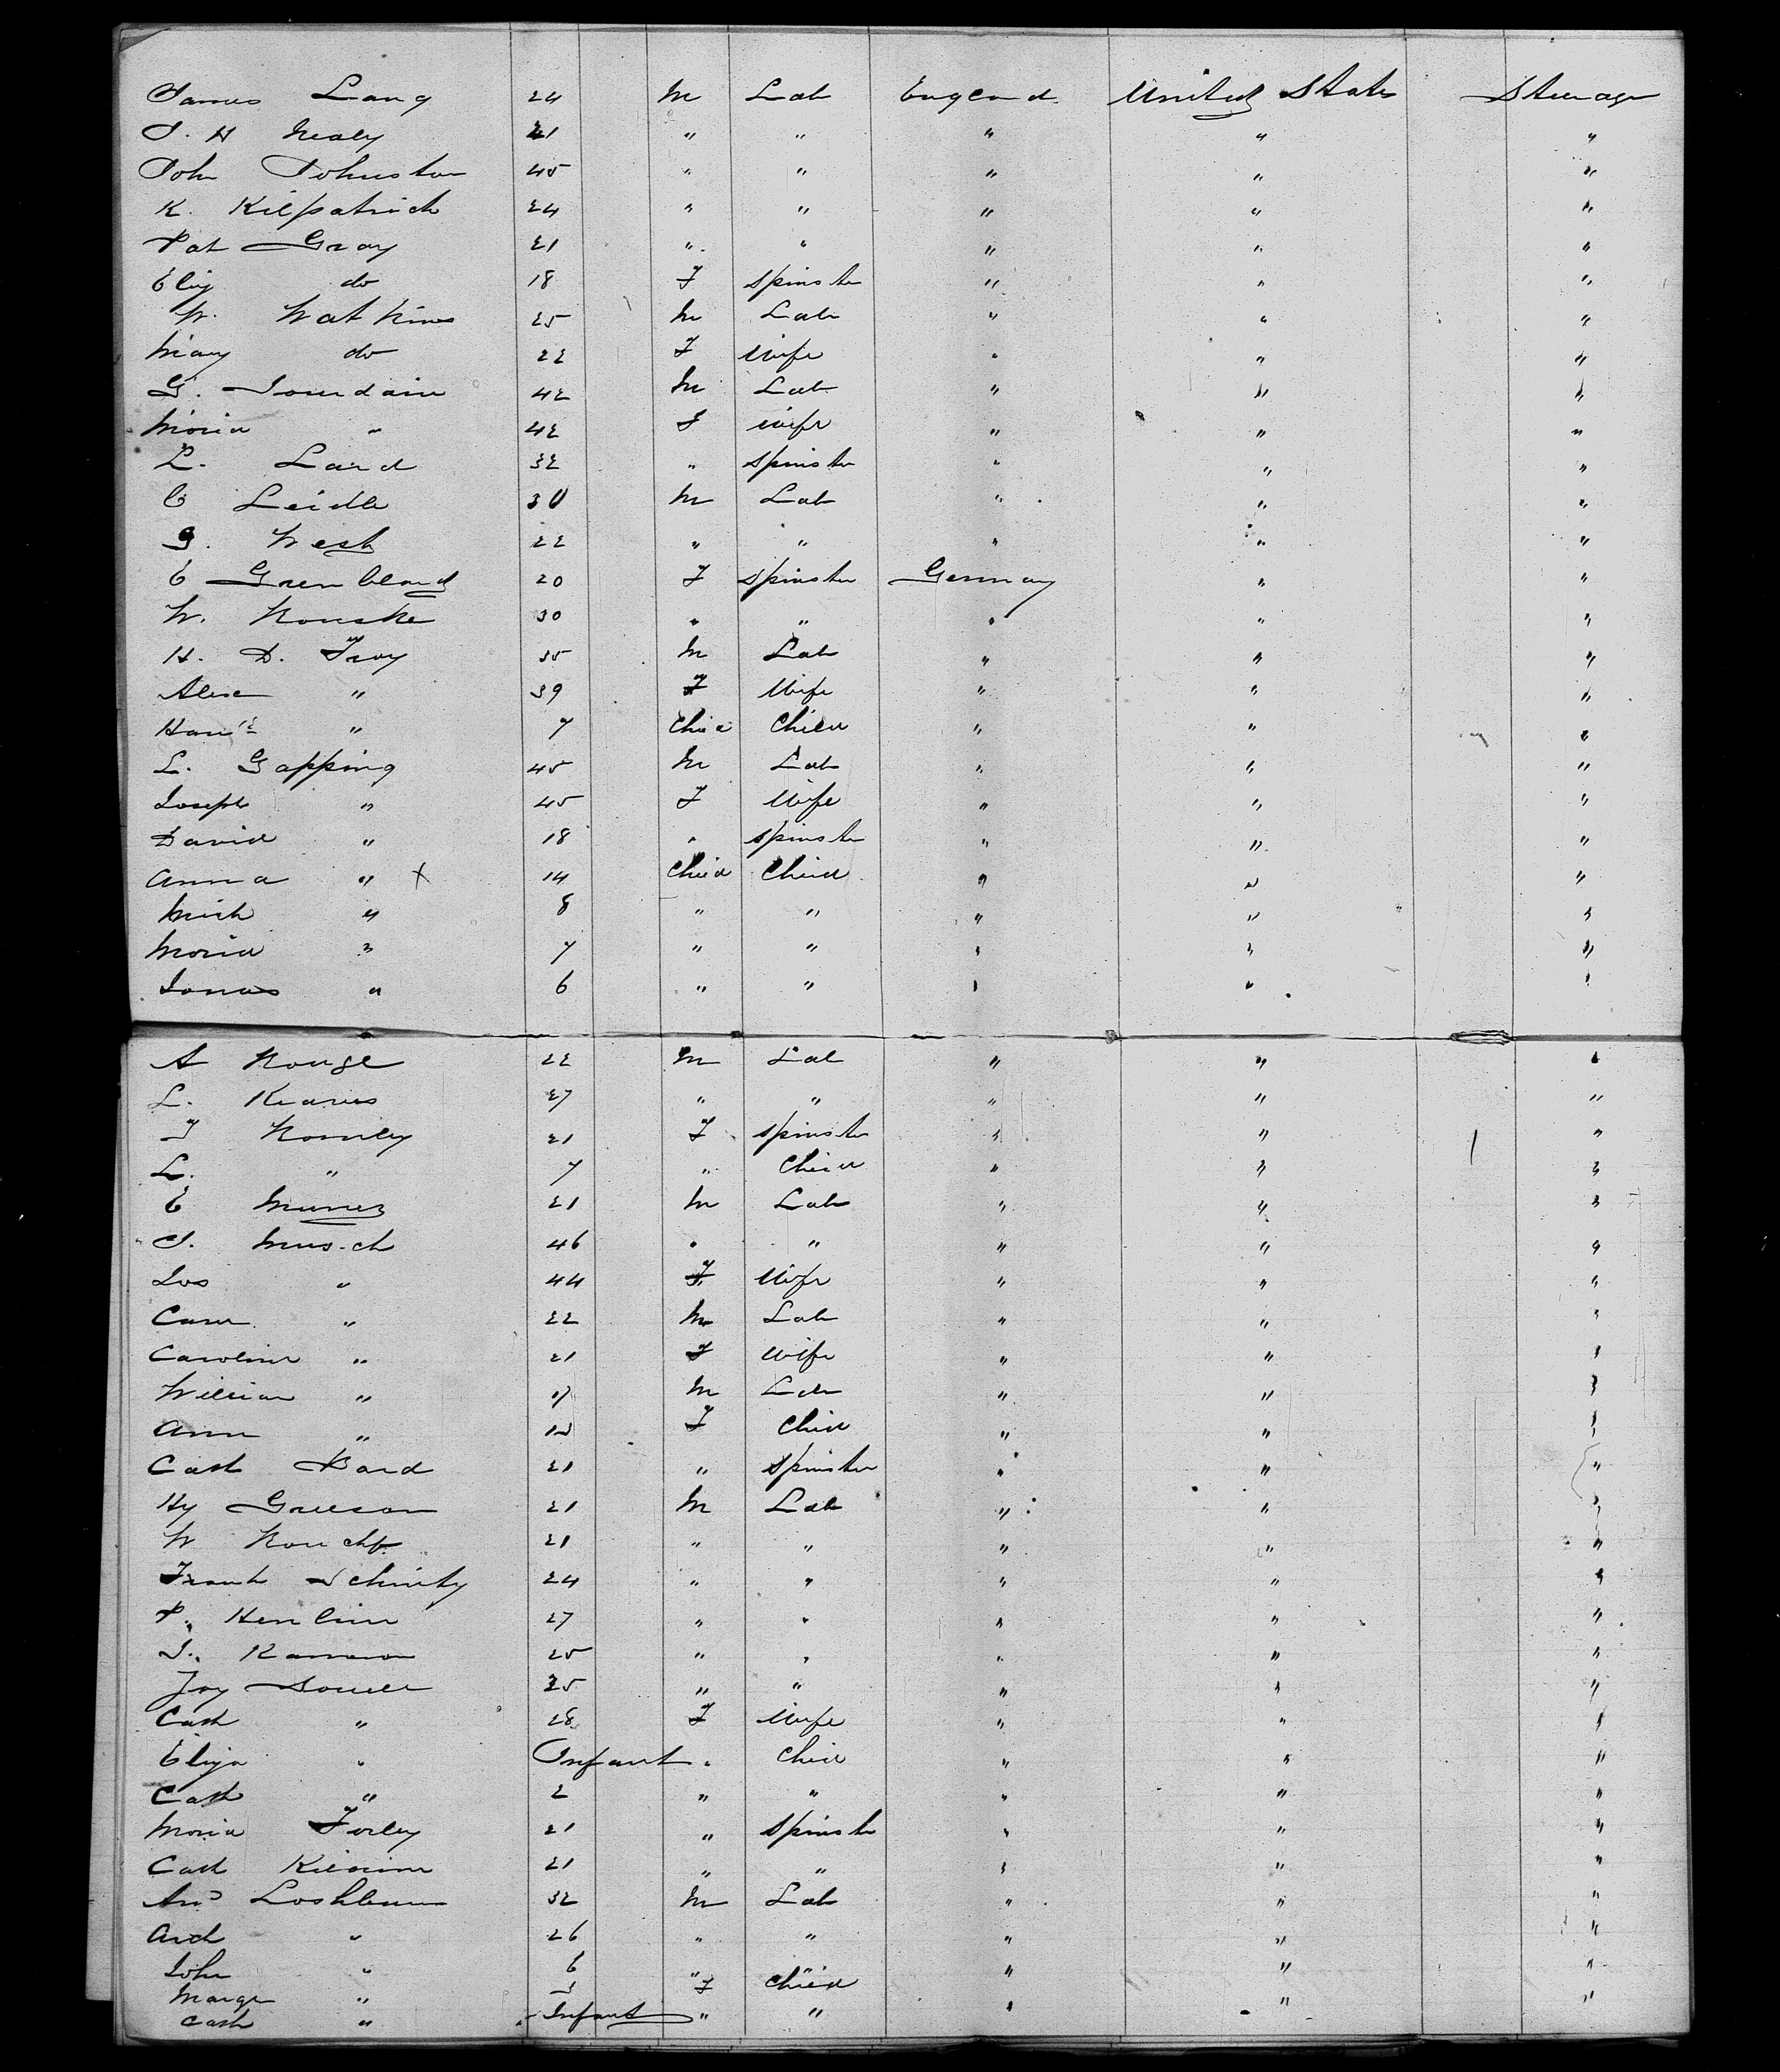 James Lang 24 M Lab England United States Steerage
J. H Nealy 21 " " " " "
John Johnston 45 " " " " "
K. Kilpatrick 24 " " " " "
Pat Gray 21 " " " " "
Eliz do 18 F Spinster " " "
W. Watkins 25 M Lab " " "
Mary do 22 F Wife " " "
G. Jourdain 42 M Lab " " "
Moria " 42 F Wife " " "
L. Laird 32 " Spinster " " "
C Leidle 30 M Lab " " "
G. West 22 " " " " "
C Greenbland 20 F Spinster Germany " "
W. Rouske 30 " " " " "
H. D. Troy 35 M Lab " " "
Alese " 39 F Wife " " "
" 7 Child Child " " "
L. Gapping 45 M Lab " " "
Joseph " 45 F Wife " " "
David " 18 " Spinster " " "
Anna " X 14 Child Child " " "
Mich " 8 " " " " "
Moria " 7 " " " " "
Jonas " 6 " " " " "
A 22 M Lab " " "
L. Kearns 27 " " " " "
F Romley 21 F Spinster " " "
L. " 7 " Child " " "
C 21 M Lab " " "
J. Musch 46 " " " " "
Jos " 44 F Wife " " "
" 22 M Lab " " "
Caroline " 21 F Wife " " "
William " 17 M Lab " " "
Ann " F Child " " "
Cath Bard 21 " Spinster " " "
Hy 21 M Lab " " "
W 21 " " " " "
Frank Schinity 24 " " " " "
P. Henline 27 " " " " "
25 " " " " "
25 " " " " "
Cath " 28 F Wife " " "
Eliza " Infant " Child " " "
Cath " 2 " " " " "
Moria Forley 21 " Spinster " " "
Cath 21 " " " " "
And Loshbum 32 M Lab " " "
Arch " 26 " " " " "
John " 6 " " " " "
Marge " 3 F Child " "
Cath " Infant " " "